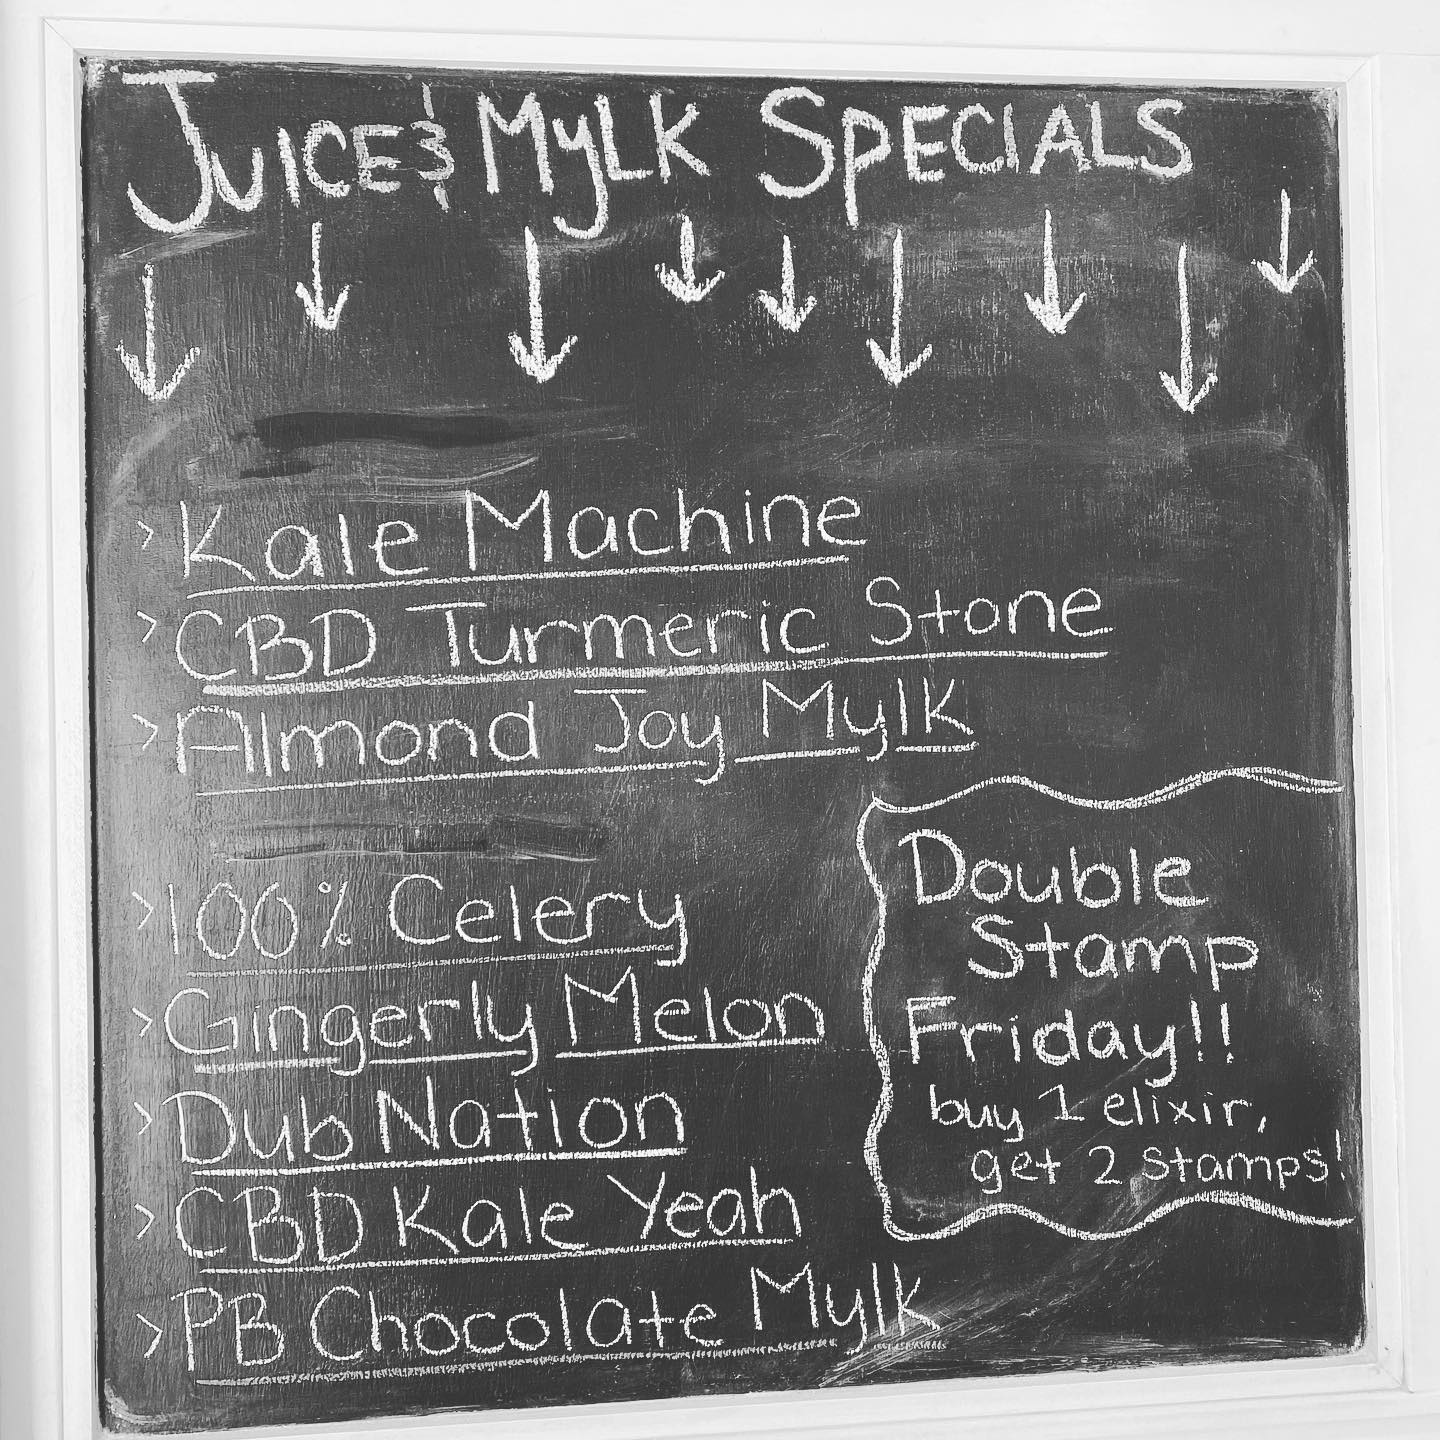 JUICE & MYLK SPECIALS
> Kale Machine
> CBD Turmeric Stone
> Almond Joy Mylk
> 100% Celery
> Gingerly Melon
> Dub Nation
> CBD Kale Yeah
> PB Chocolate Mylk
Double
Stamp
Friday!!
buy 1 elixir,
get 2 stamps!